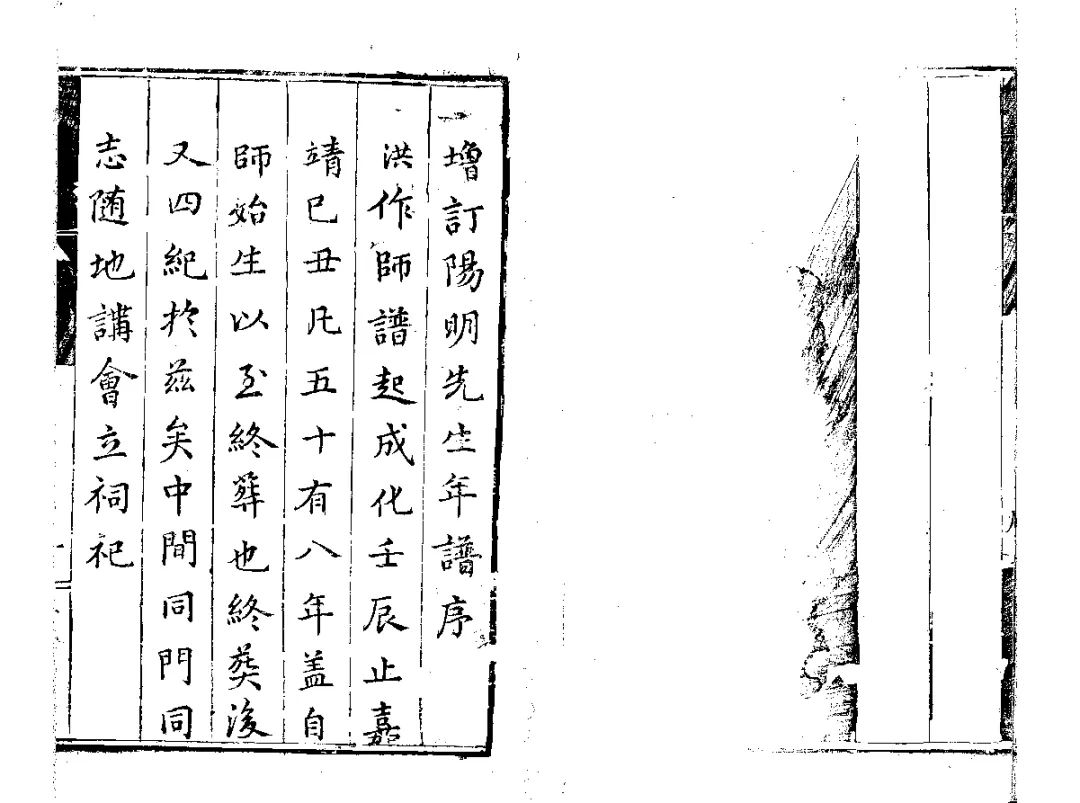 增訂陽明先生年譜序
洪作師譜起成化壬辰止嘉
靖己丑凡五十有八年盖自
師始生以至終葬也終葬後
又四紀於兹矣中間同門同
志随地講會立祠祀